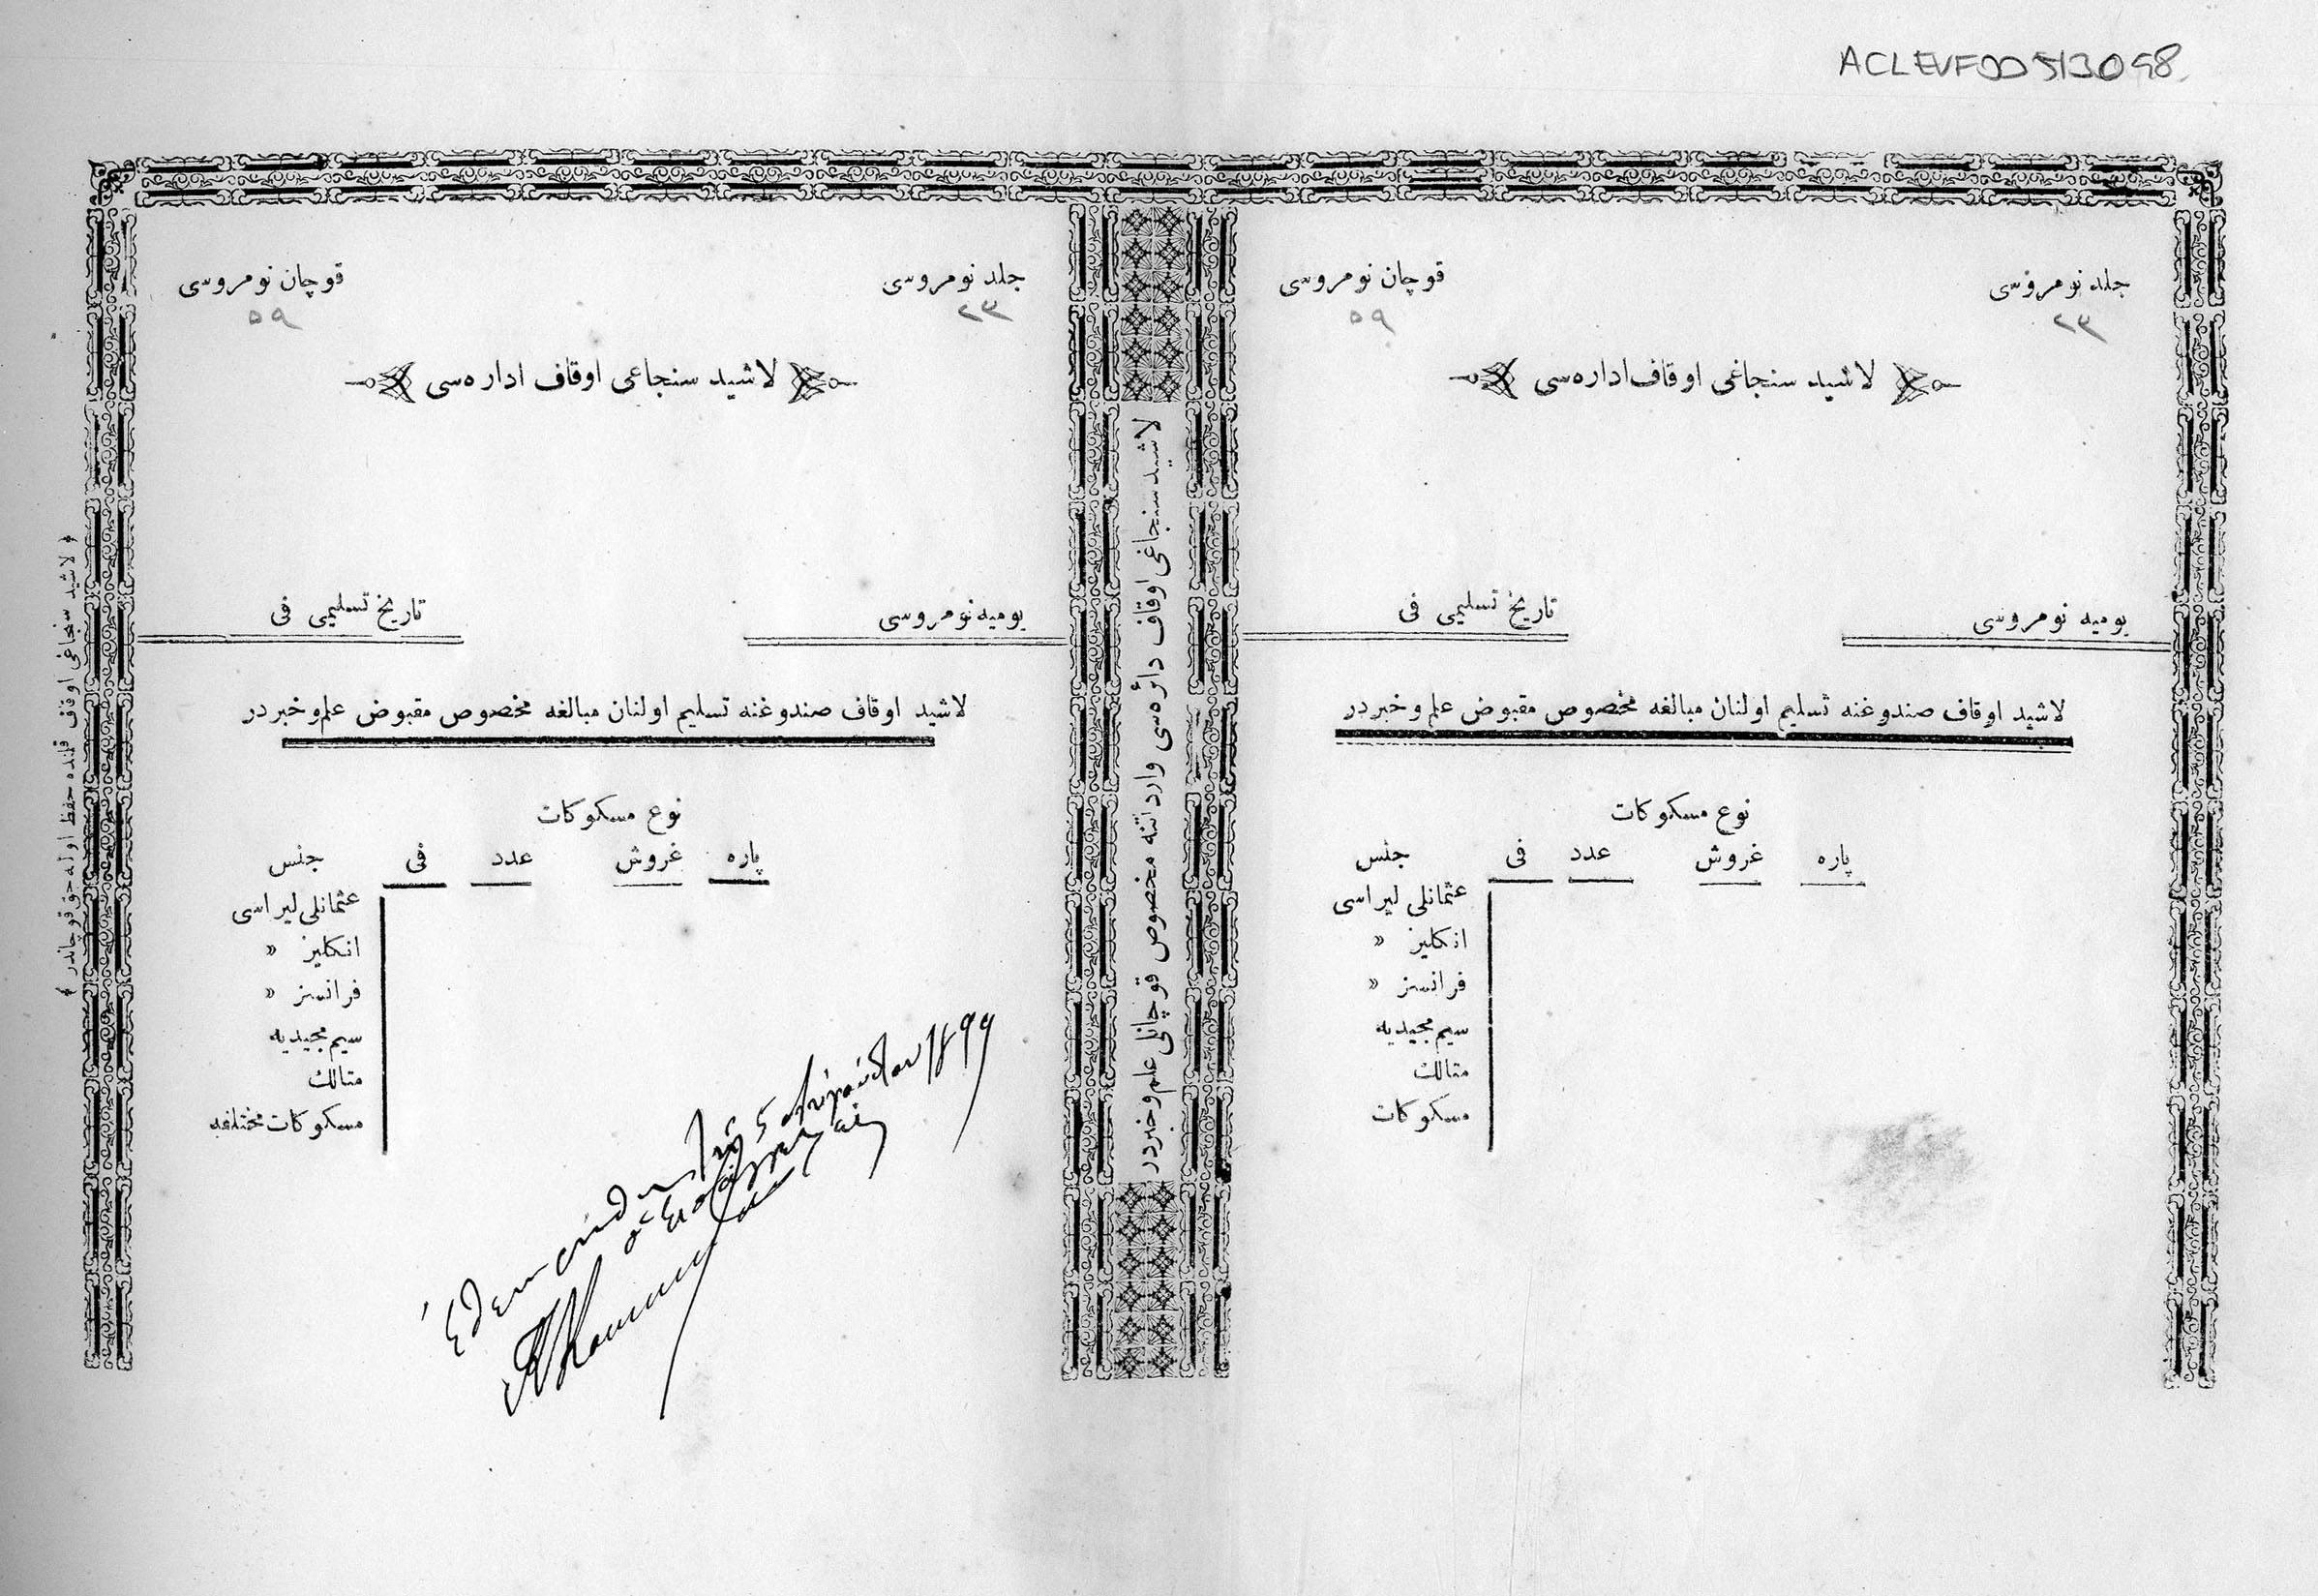 ACLEVF00513098
جلد نومروسی
٢٣
قوچان نومروسی
٥٩
لاشید سنجاغی اوقاف اداره‌سی
یومیه نومروسی
تاریخ تسلیمی فی
لاشید اوقاف صندوغنه تسلیم اولنان مبالغه مخصوص مقبوض علم و خبردر
نوع مسکوکات
پاره غروش عدد فی جنس
عثمانلی لیراسی
انکلیز »
فرانسز »
سیم مجیدیه
متالك
مسکوکات
لاشید سنجاغی اوقاف دائره‌سی وارداتنه مخصوص قوچانلی علم و خبردر
جلد نومروسی
٢٣
قوچان نومروسی
٥٩
لاشید سنجاغی اوقاف اداره‌سی
یومیه نومروسی
تاریخ تسلیمی فی
لاشید اوقاف صندوغنه تسلیم اولنان مبالغه مخصوص مقبوض علم و خبردر
نوع مسکوکات
پاره غروش عدد فی جنس
عثمانلی لیراسی
انکلیز »
فرانسز »
سیم مجیدیه
متالك
مسکوکات مختلفه
ἐθεωρήθη τῇ 5 Αὐγούστου 1899
﴿ لاشید سنجاغی اوقاف قلمنده حفظ اوله‌جق قوچاندر ﴾